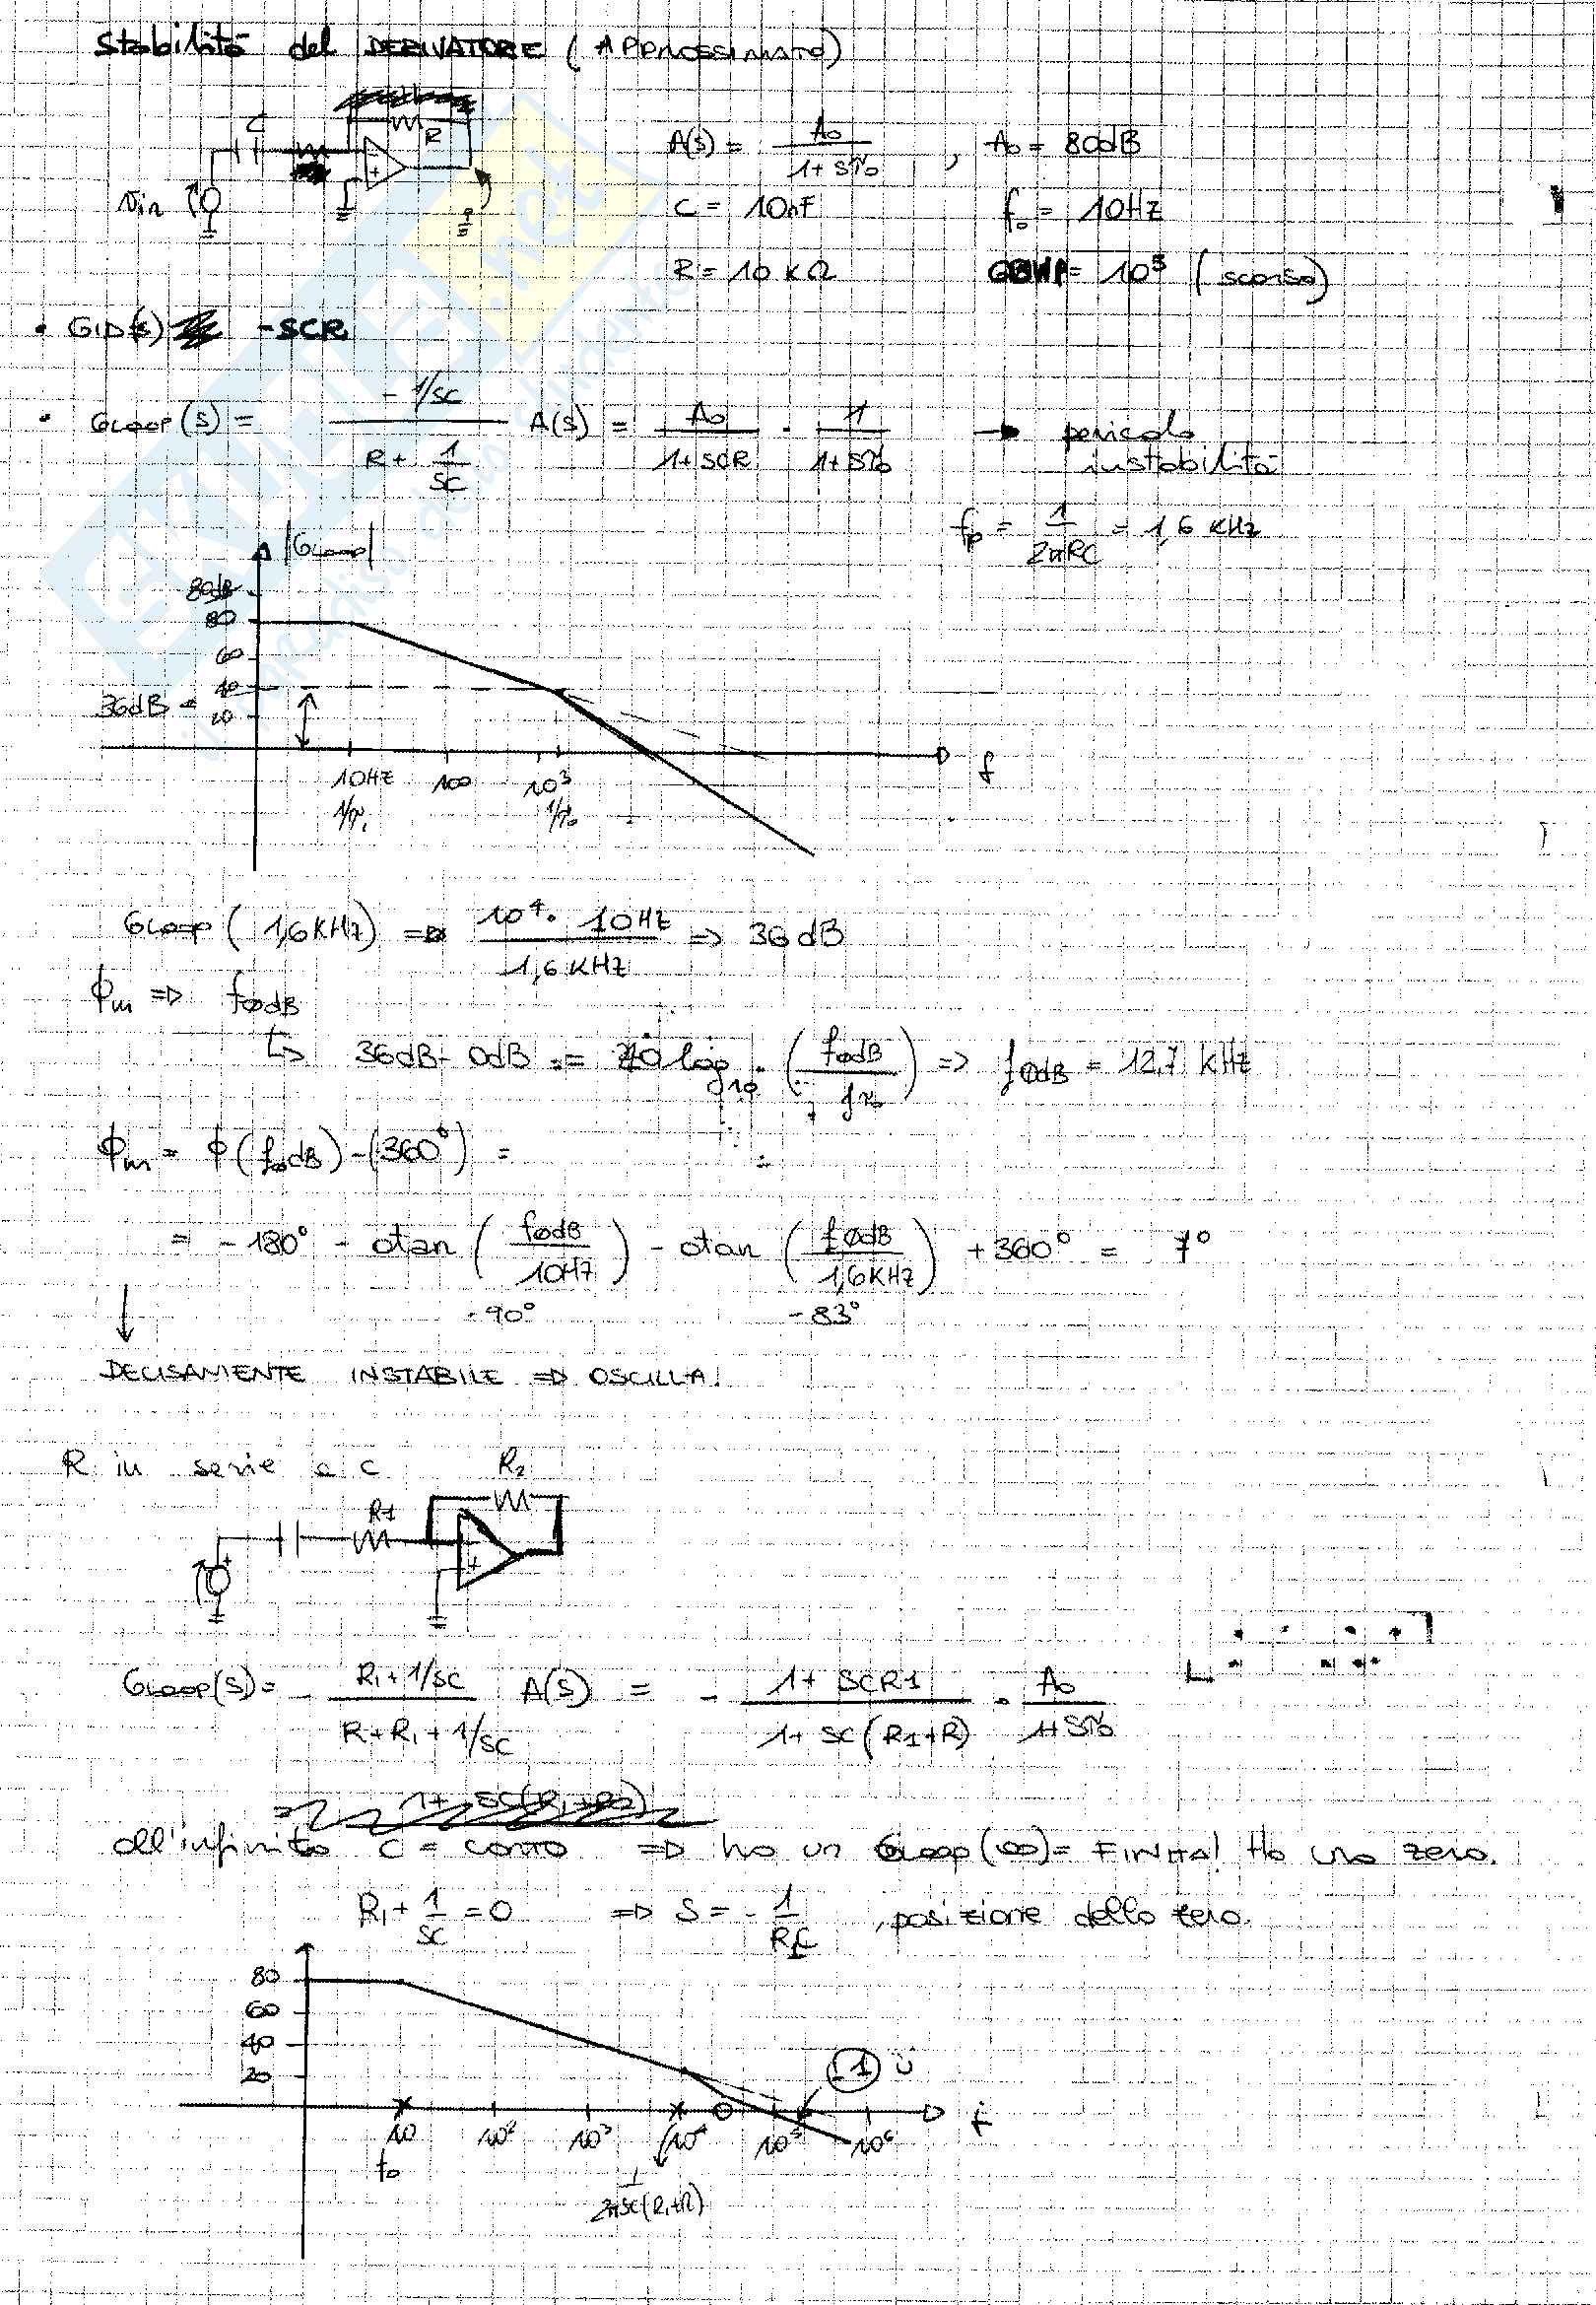 Stabilità del DERIVATORE (APPROSSIMATO)
C
R
Vin
A(s) = A₀ / (1+sτ₀) , A₀ = 80dB
C = 10nF f₀ = 10Hz
R = 10 KΩ GBWP = 10⁵ (scarso)
• GID(s) -SCR
• GLOOP(s) = (-1/SC) / (R + 1/SC) A(s) = A₀ / (1+SCR) · 1 / (1+Sτ₀) → pericolo instabilità
fp = 1 / (2πRC) = 1,6 KHz
|GLOOP|
80dB
80
60
40
36dB
20
10Hz 100 10³ f
GLOOP (1,6KHz) => 10⁴ · 10Hz / 1,6KHz => 36dB
ϕm => f0dB
↳ 36dB - 0dB = 40 log₁₀ (f0dB / fp) => f0dB = 12,7 KHz
ϕm = ϕ(f0dB) - (360°) =
= -180° - atan (f0dB / 10Hz) - atan (f0dB / 1,6KHz) + 360° = 7°
-90° -83°
DECISAMENTE INSTABILE => OSCILLA!
R in serie a C
R₂
R1
GLOOP(S) = - (R₁+1/SC) / (R+R₁+1/SC) A(S) = - (1+SCR1) / (1+SC(R1+R)) · A₀ / (1+Sτ₀)
all'infinito C = corto => ho un GLOOP(∞) = FINITA! Ho uno zero.
R₁ + 1/SC = 0 => S = - 1 / R₁C , posizione dello zero.
80
60
40
20
-1
10 10² 10³ 10⁴ 10⁵ 10⁶ f
f₀
1 / 2πSC(R₁+R)